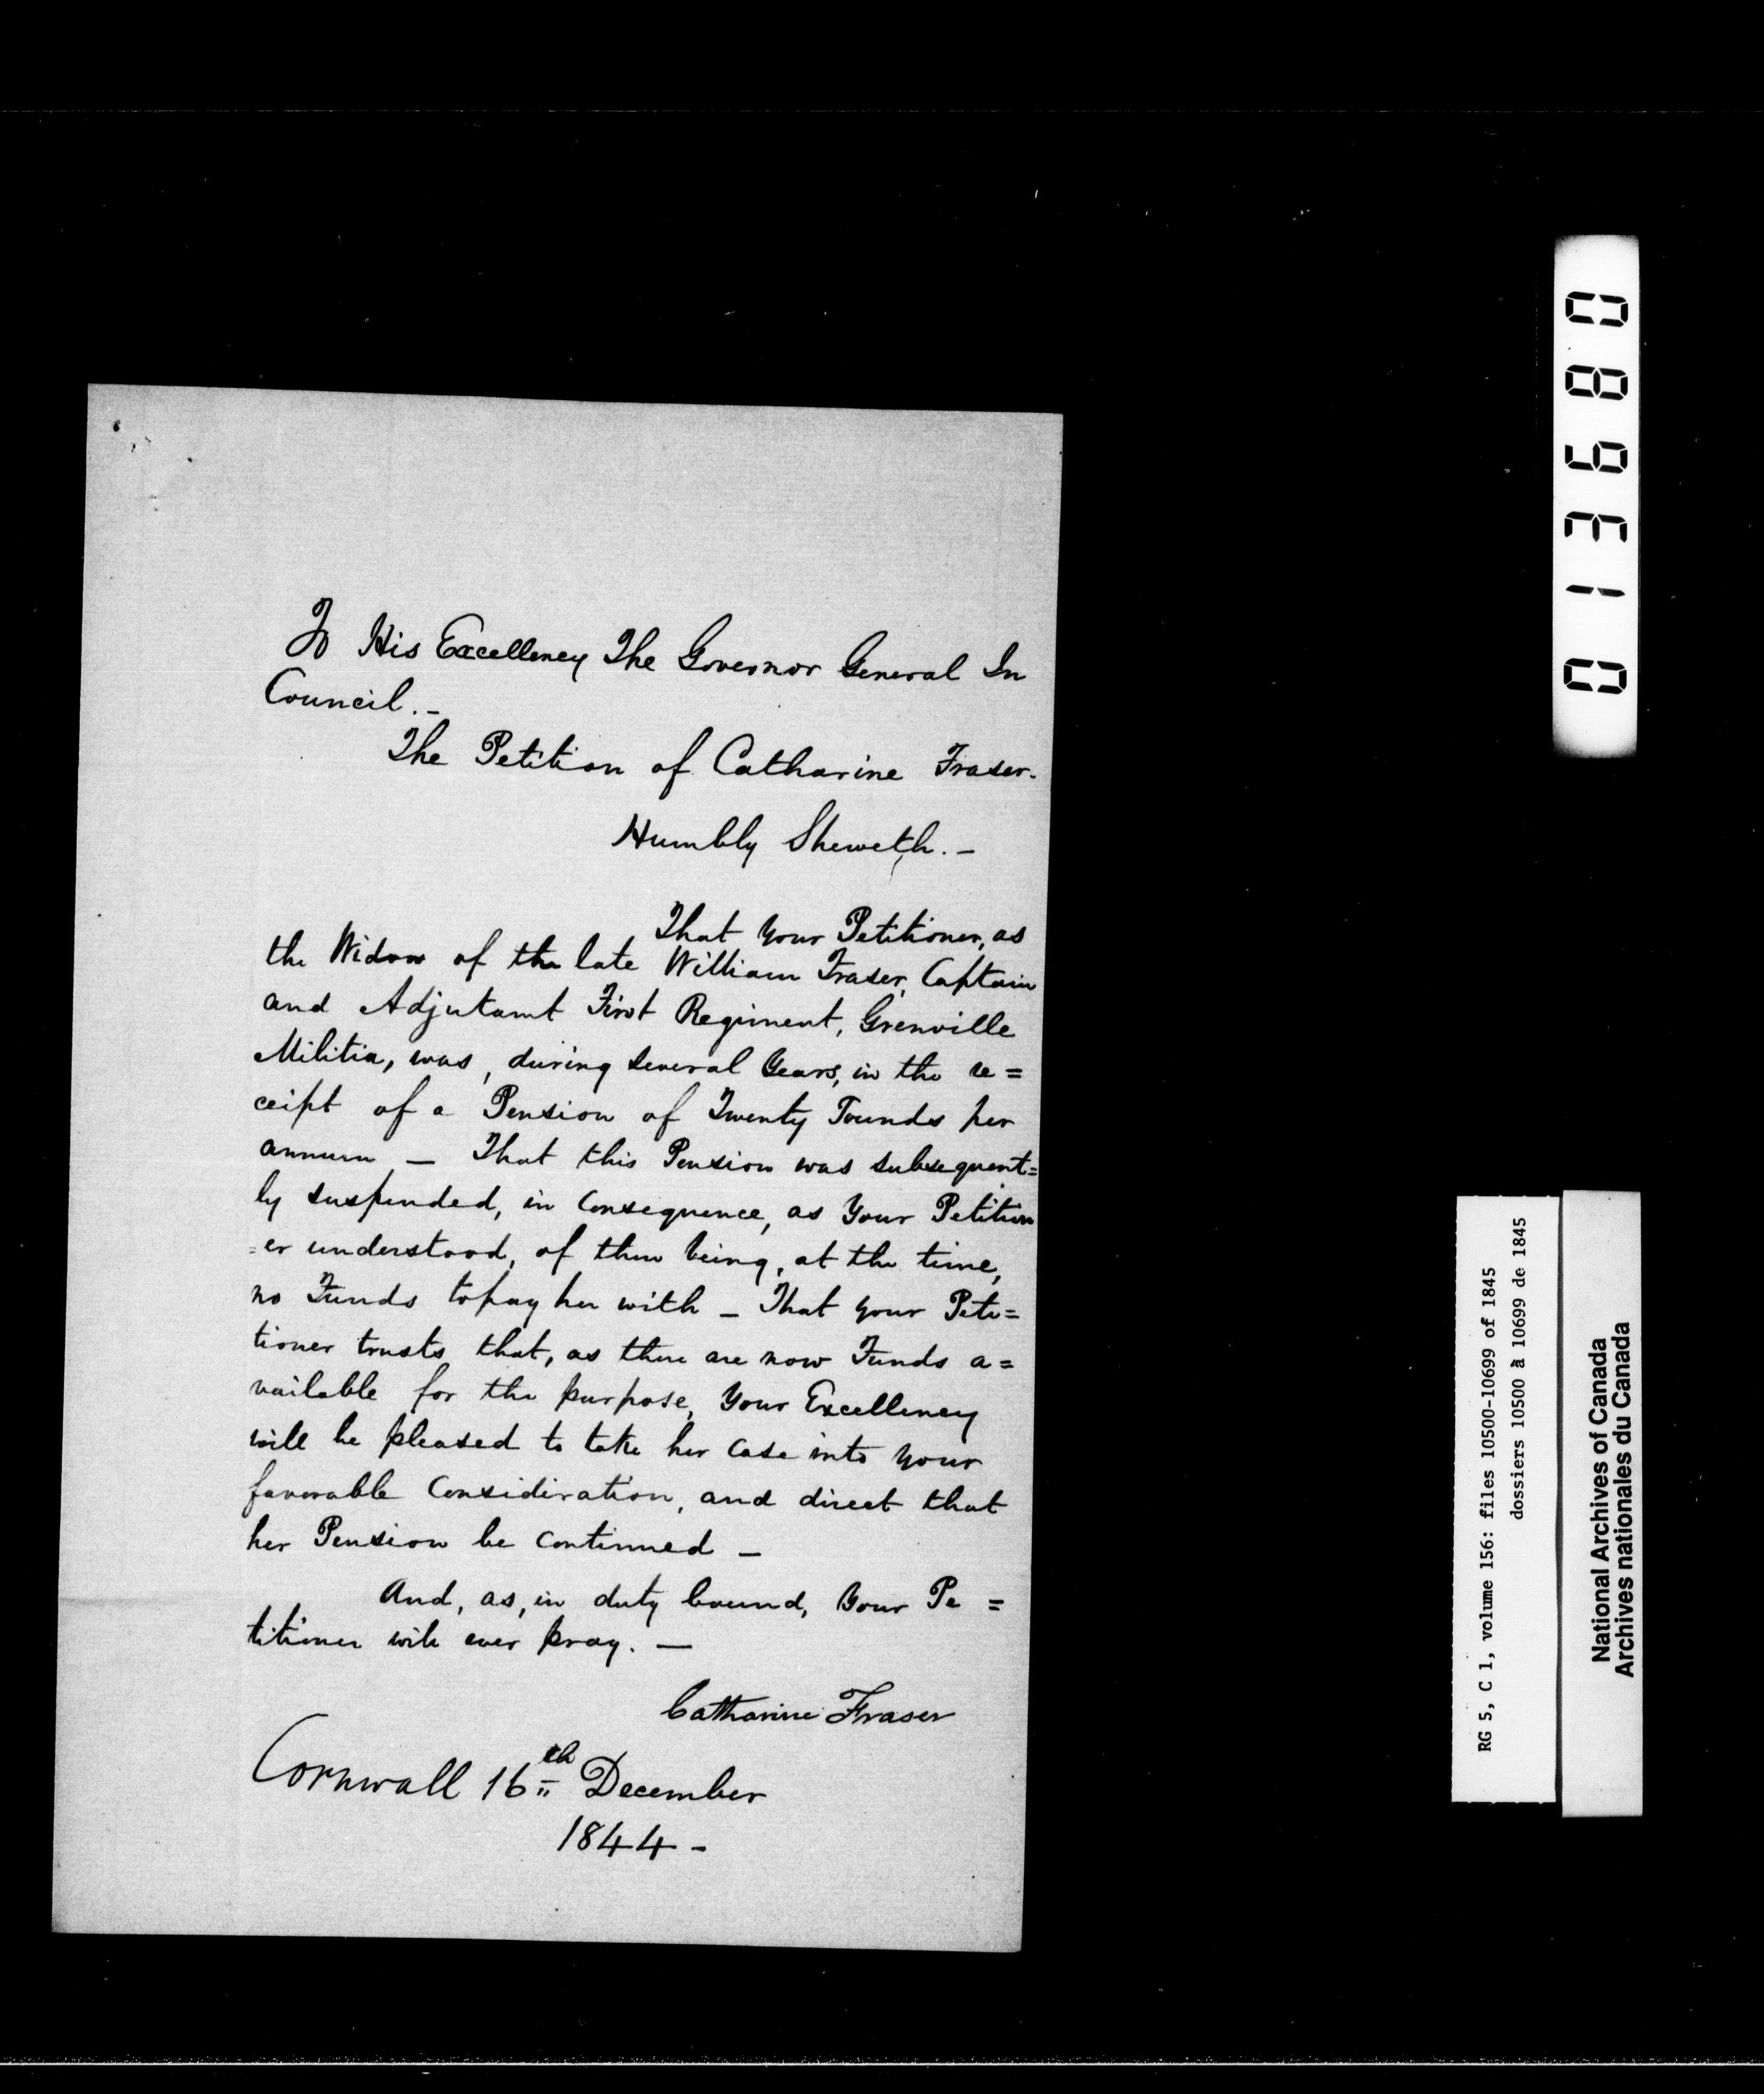 To His Excellency The Governor General In
Council. _
The Petition of Catharine Fraser.
Humbly Sheweth. _
That Your Petitioner, as
the Widow of the late William Fraser, Captain
and Adjutant First Regiment, Grenville
Militia, was, during several Years, in the re=
ceipt of a Pension of Twenty Pounds per
annum _ That this Pension was subsequent=
ly suspended, in consequence, as Your Petition
=er understood, of there being, at the time,
no Funds to pay her with _ That your Peti=
tioner trusts that, as there are now Funds a=
vailable for the purpose, Your Excellency
will be pleased to take her case into your
favorable Consideration, and direct that
her Pension be continued _
And, as, in duty bound, Your Pe =
titioner will ever pray. _
Catharine Fraser
Cornwall 16th December
1844 -
013680
RG 5, C 1, volume 156: files 10500-10699 of 1845
dossiers 10500 à 10699 de 1845
National Archives of Canada
Archives nationales du Canada